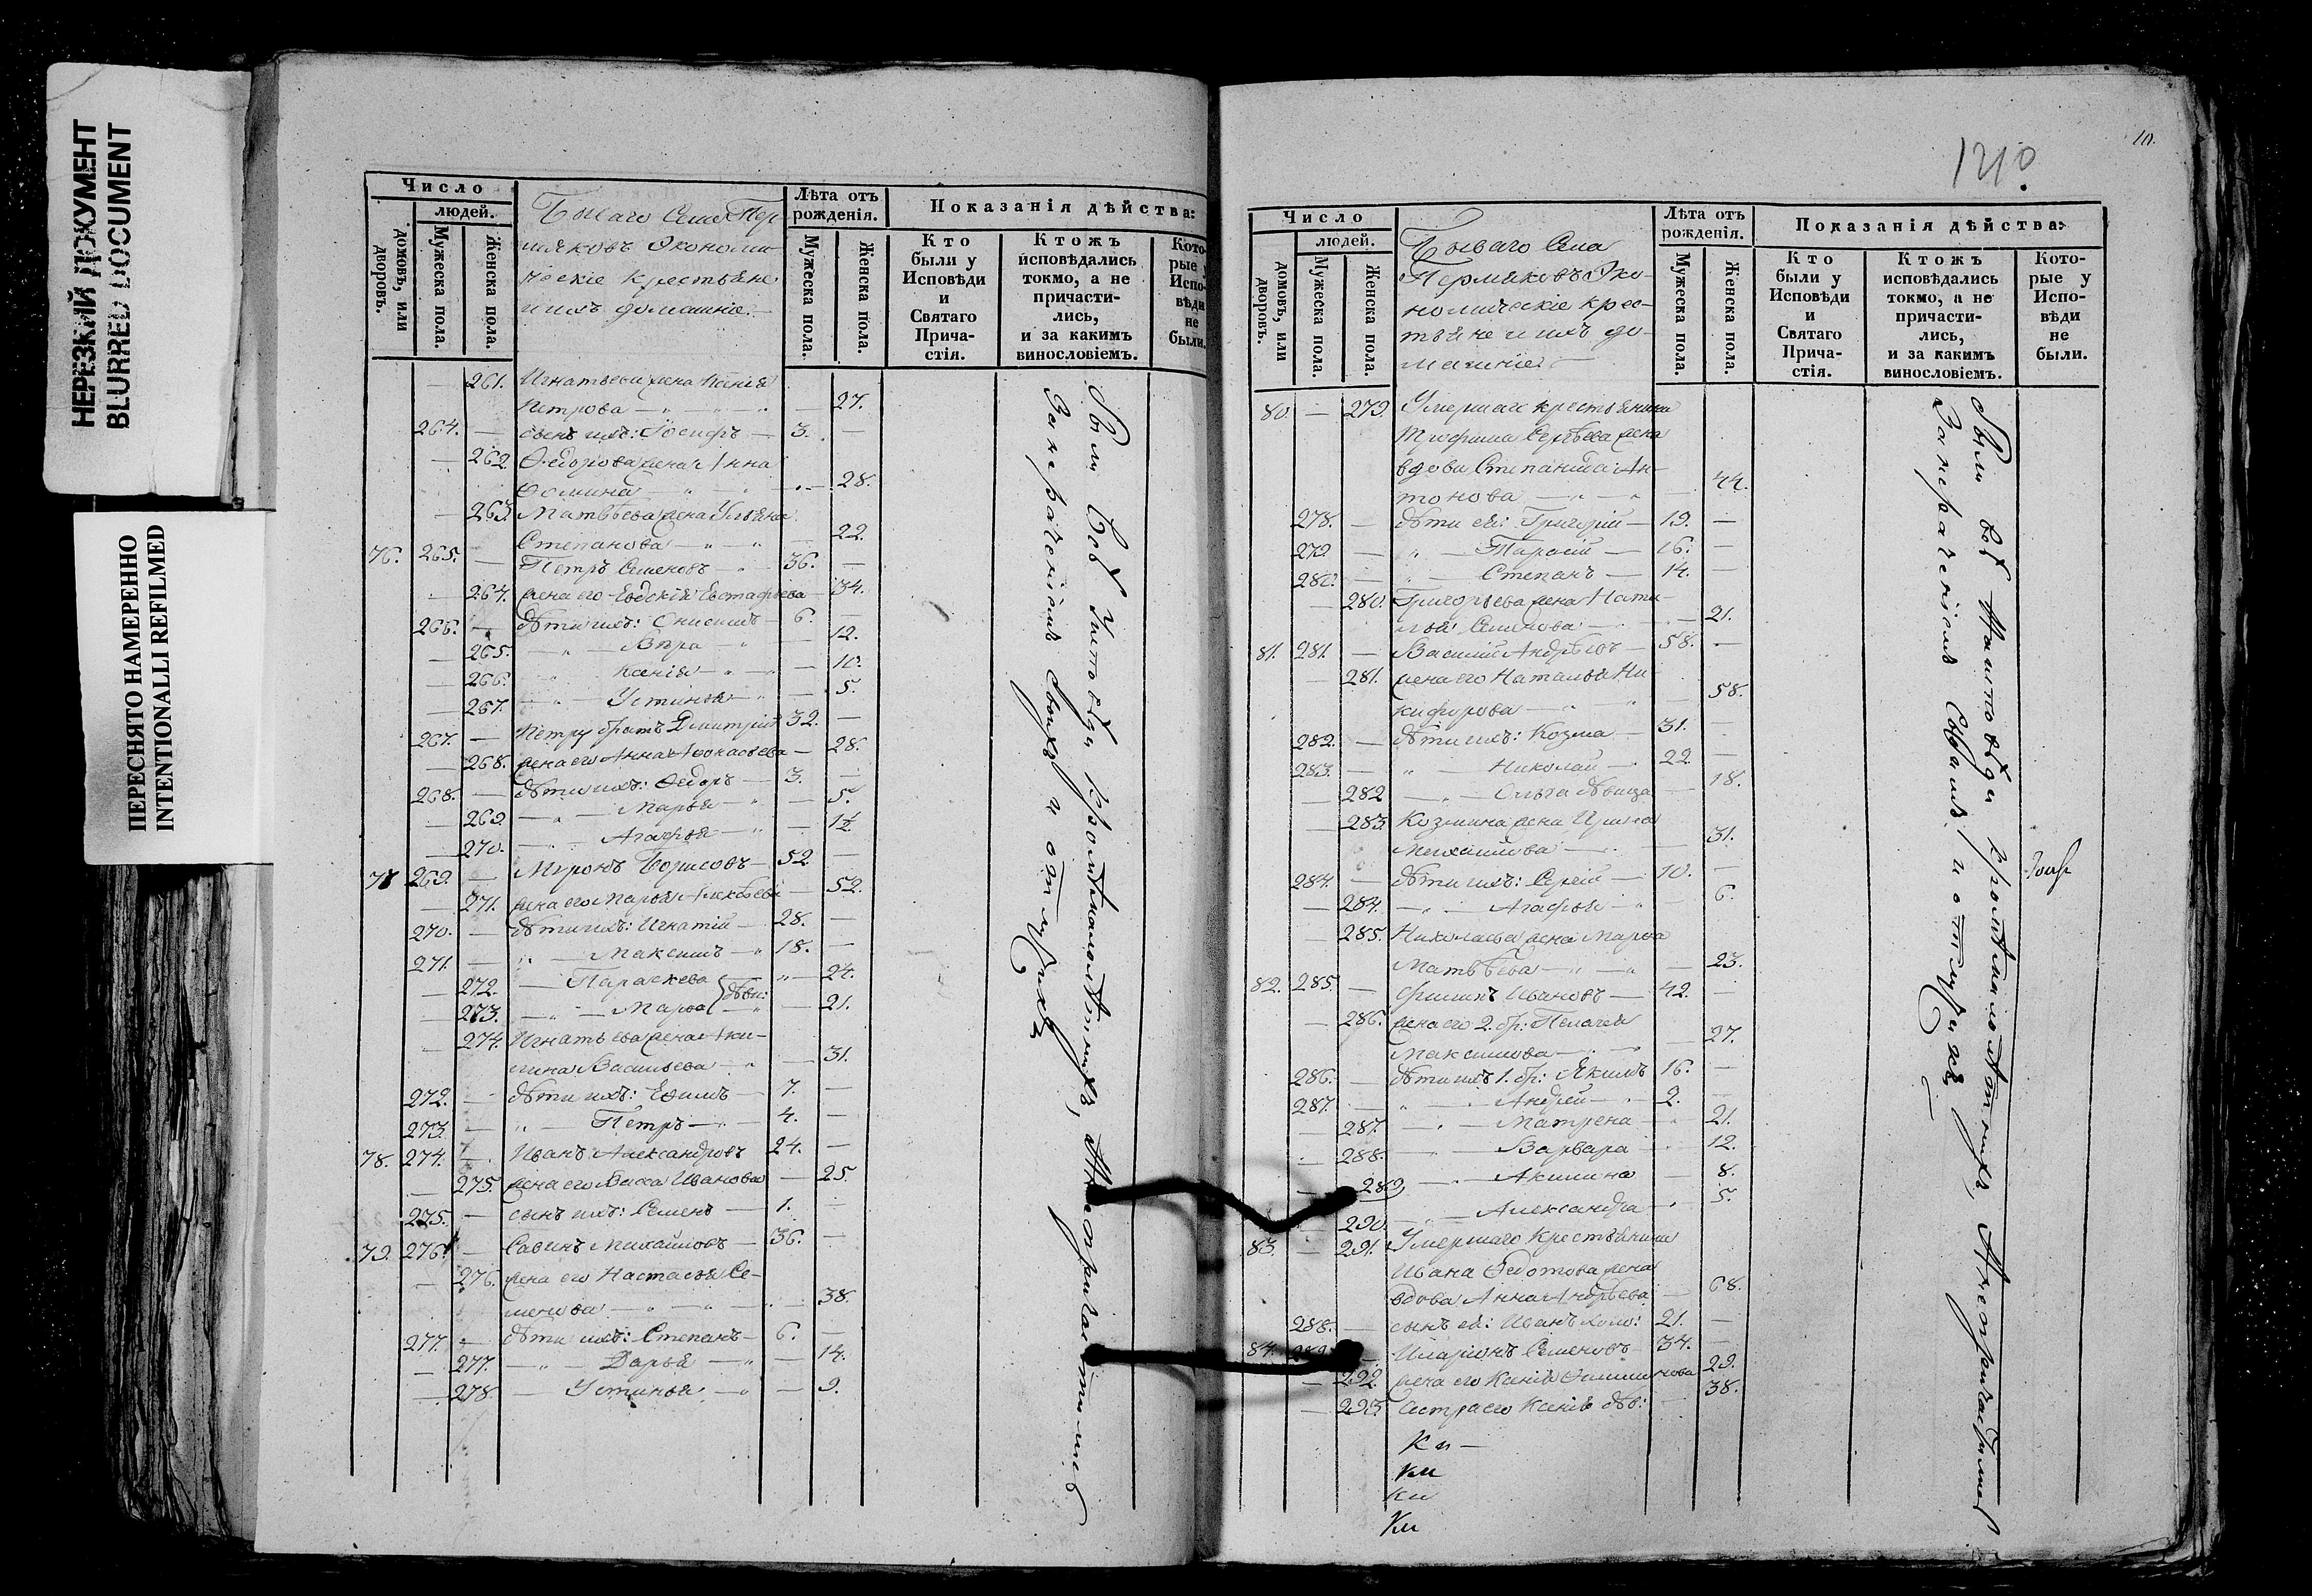 НЕРЕЗКИЙ ДОКУМЕНТ
BLURRED DOCUMENT
ПЕРЕСНЯТО НАМЕРЕННО
INTENTIONALLI REFILMED
Число
людей.
домовъ, или дворовъ.
Мужеска пола.
Женска пола.
Бываго Села Пер
мяковъ Экономи
ческіе крестьяне
и ихъ домашніе.
Лѣта отъ рожденія.
Мужеска пола.
Женска пола.
Показанія дѣйства:
Кто были у Исповѣди и Святаго Прича-стія.
Ктожъ исповѣдались токмо, а не причасти-лись, и за какимъ винословіемъ.
Кото-рые у Испо-вѣди не были.
— 261. Игнатьева жена Ксенія
Петрова — 27.
264. — сынъ ихъ: Іосифъ — 3. —
— 262. Ѳедорова жена Анна
Ѳомина — 28.
263. Матвѣева жена Ульяна
Степанова — 22.
76. 265. — Петръ Семеновъ — 36. —
— 264. жена его Евдокія Евстафьева — 34.
266. — дѣти ихъ: Онисимъ — 6. —
— 265. — Вѣра — 12.
— 266. Ксенія — 10.
— 267. — Устинья — 5.
267. — Петру братъ Дмитрій 32. —
— 268. жена его Анна Аѳонасьева — 28.
268. — дѣти ихъ: Ѳедоръ — 3. —
— 269. — Марья — 5.
— 270. — Агафья — 1½
77 269. — Миронъ Борисовъ — 52 —
— 271. жена его Марья Алексѣева — 52.
270. — дѣти ихъ: Игнатій — 28. —
271. — Максимъ — 18. —
— 272. — Параскева — 24.
— 273. — Марѳа дѣв: — 21.
— 274. Игнатьева жена Аки-
лина Васильева — 31.
272. — дѣти ихъ: Ефимъ — 7. —
273. — Петръ — 4. —
78. 274. — Иванъ Александровъ 24. —
— 275. жена его Васса Иванова — 25.
275. — сынъ ихъ: Семенъ — 1. —
79. 276. — Савинъ Михайловъ — 36. —
— 276. жена его Настасья Се-
менова — 38.
277. — дѣти ихъ: Степанъ — 6. —
— 277. — Дарья — 14.
— 278 — Устинья — 9.
Были всѣ у исповѣди кромѣ малолѣтнихъ, а не причастились
За нерачениемъ своимъ и отлучкахъ
10.
1210
Число
людей.
домовъ, или дворовъ.
Мужеска пола.
Женска пола.
Бываго Села
Пермяковъ Эко-
номическіе крес-
тьяне и ихъ до-
машніе.
Лѣта отъ рожденія.
Мужеска пола.
Женска пола.
Показанія дѣйства:
Кто были у Исповѣди и Святаго Прича-стія.
Ктожъ исповѣдались токмо, а не причасти-лись, и за какимъ винословіемъ.
Кото-рые у Испо-вѣди не были.
80. — 279. Умершаго крестьянина
Трофима Сергѣева жена
вдова Степанида Ан-
тонова — 44.
278. — дѣти ея: Григорій — 19. —
279 — Тарасій — 16. —
280. — Степанъ — 14. —
— 280. Григорьева жена Ната-
лья Семенова — 21.
81. 281. — Василій Андрѣевъ — 58. —
— 281. жена его Наталья Ни-
кифорова — 58.
282. — дѣти ихъ: Козма — 31. —
283. — Николай — 22. —
— 282 — Ольга дѣвица — 18.
— 283. Козмина жена Ирина
Михайлова — 31.
284. — дѣти ихъ: Сергій — 10. —
— 284. — Агафья — 6.
— 285. Николаева жена Марѳа
Матвѣева — 23.
82. 285. — Филипъ Ивановъ — 42. —
— 286. жена его 2. бр: Пелагея
Максимова — 27.
286. — дѣти ихъ 1. бр: Якимъ 16. —
287. — Андрей — 2. —
— 287. — Матрена — 21.
— 288. — Варвара — 12.
— 289 — Акилина — 8.
290. — Александра — 5.
83. — 291. Умершаго Крестьянина
Ивана Ѳедотова жена
вдова Анна Андрѣева — 68.
288. — сынъ ея: Иванъ холо: 21. —
84. 289. — Иларіонъ Семеновъ 34. —
— 292. жена его Ксенія 29.
— 293. Сестра его Ксенія дѣв: — 38.
Были всѣ у исповѣди кромѣ малолѣтнихъ, а не причастились
За нерачениемъ своимъ, и отлучкахъ —
Ки —
Ки
Ки
Ки